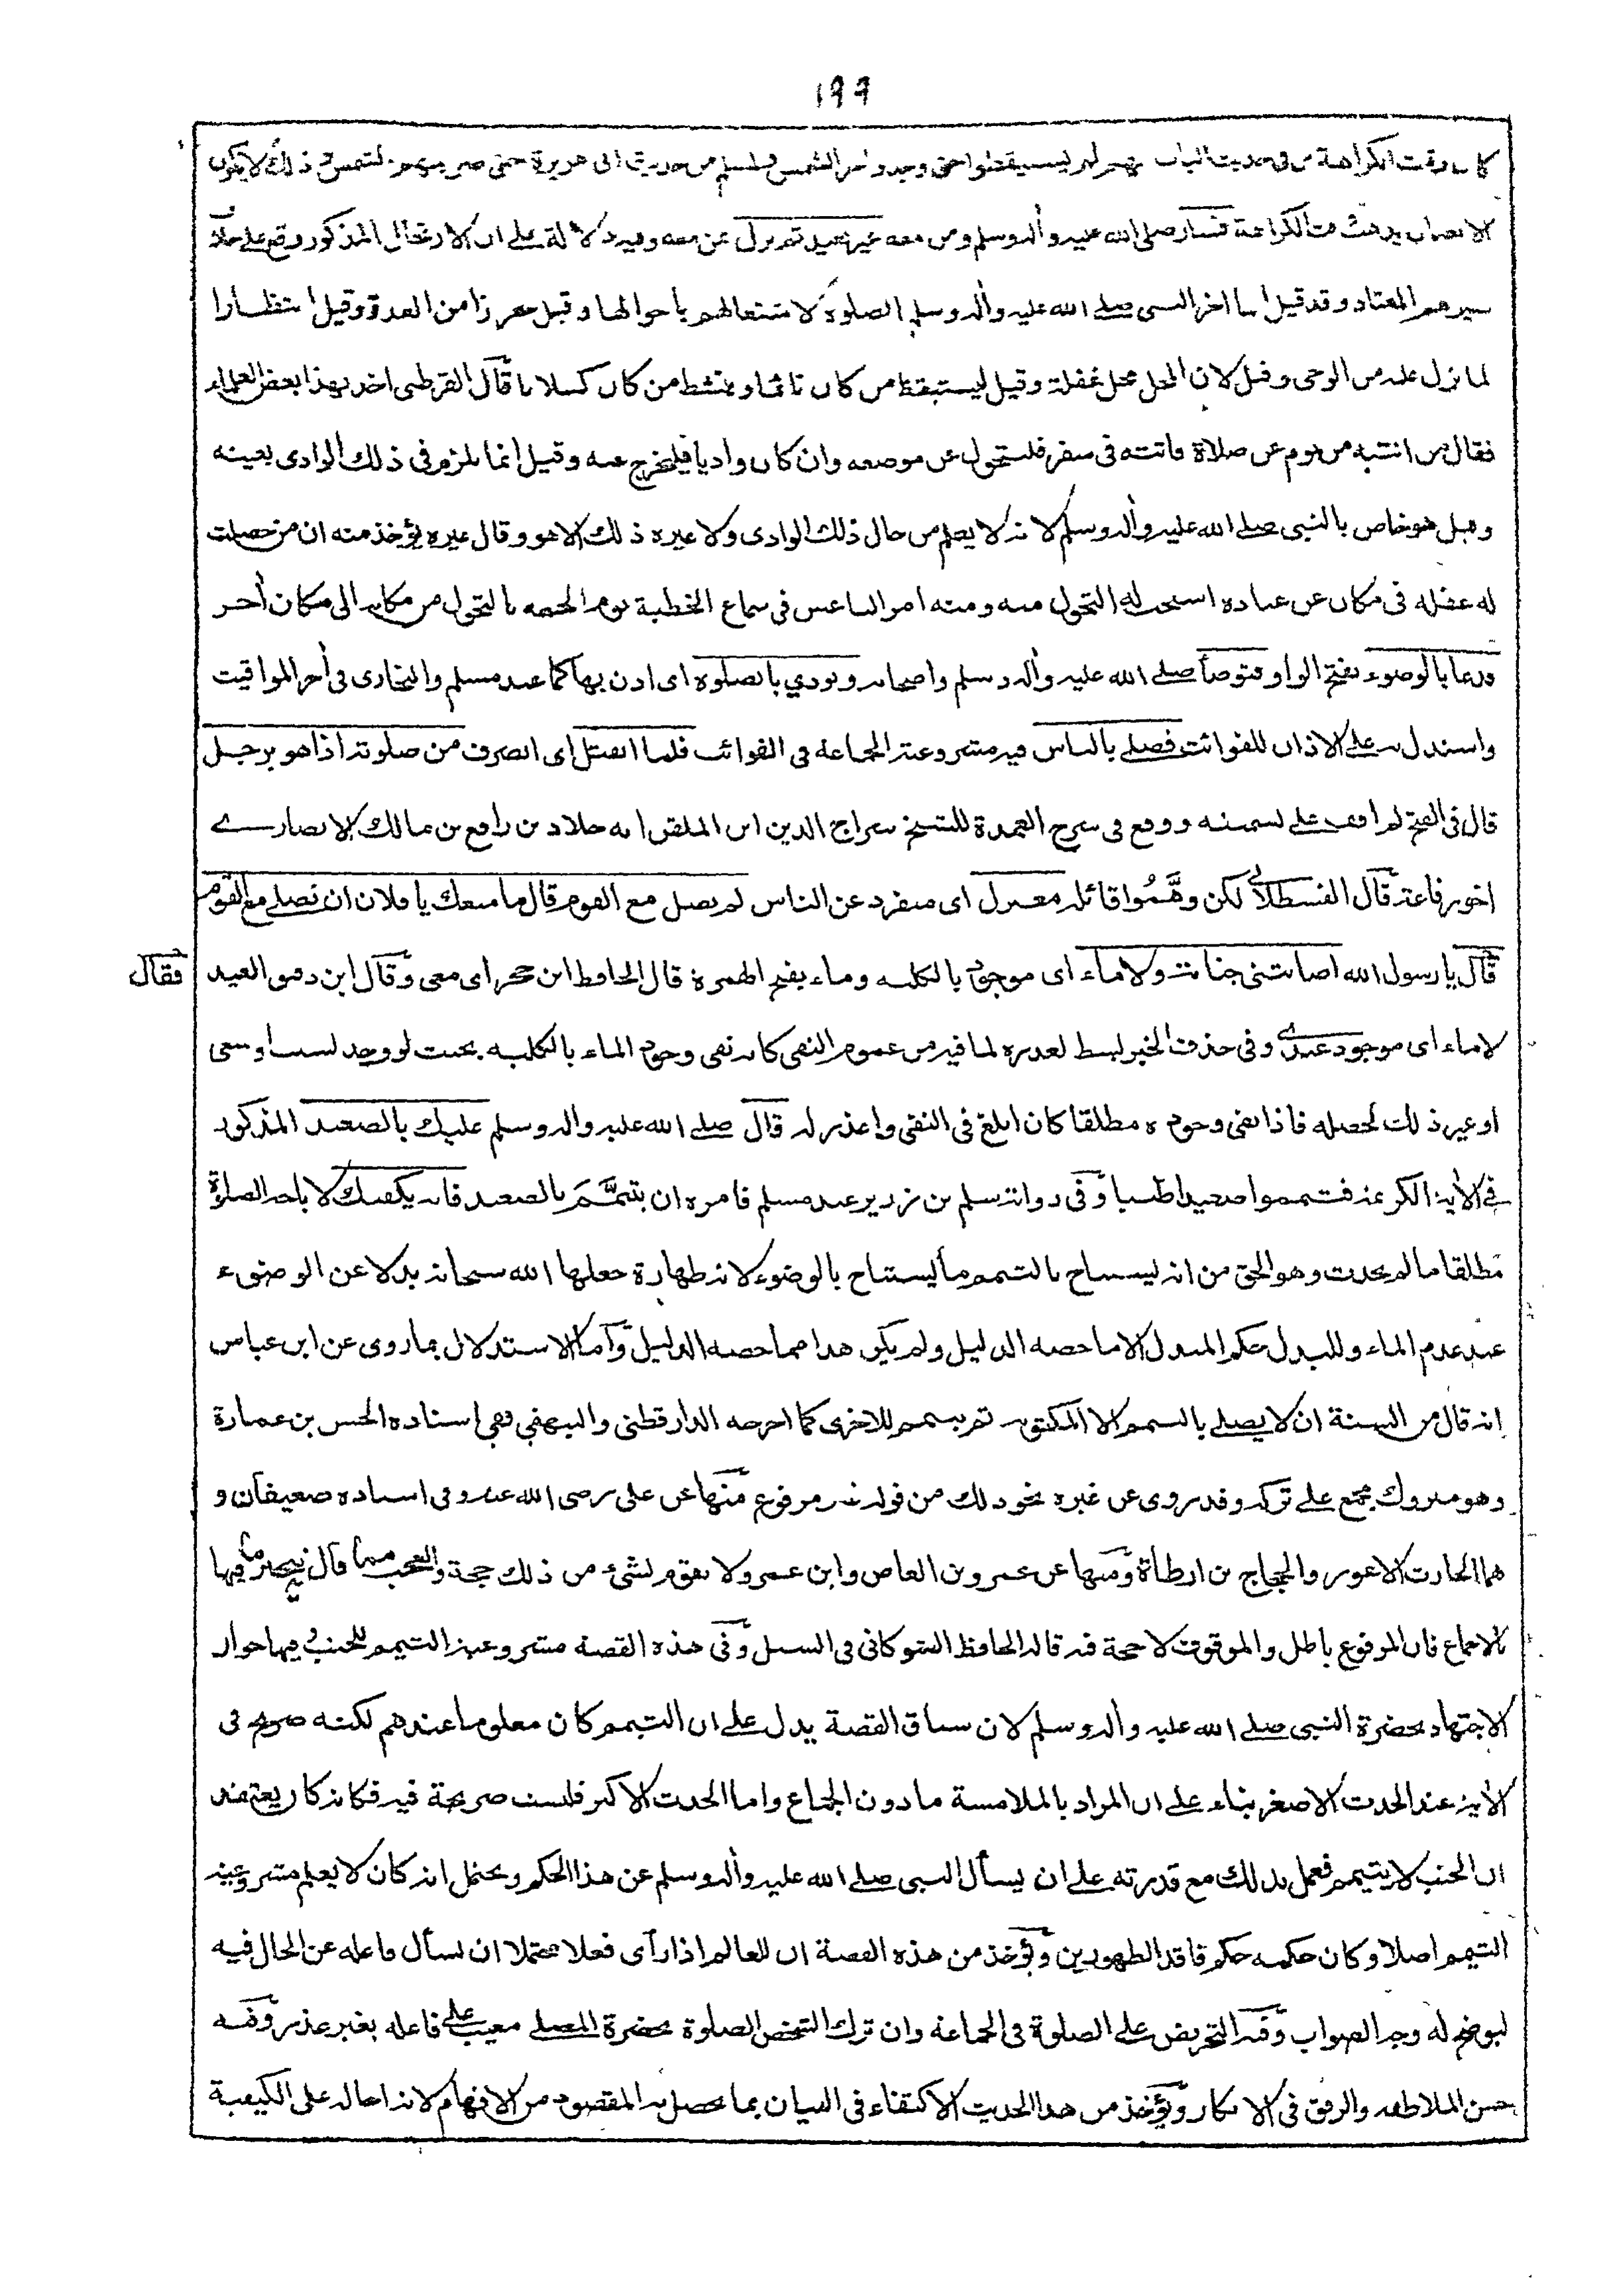 ١٩٩
كان وقت الكراهة من في حديث الباب لم يستيقظوا حتى وجدوا حر الشمس ولمسلم من حديث ابى هريرة حتى ضربتهم الشمس وذلك لا يكون
الا بعد ان يذهب وقت الكراهة فسار صلى الله عليه وآله وسلم ومن معه غير بعيد ثم نزل بمن معه وفيه دلالة على ان الارتحال المذكور وقع على خلاف
سيرهم المعتاد وقد قيل انما اخر النبي صلى الله عليه وآله وسلم الصلوة لاشتغالهم باحوالها وقيل تحرزا من العدو وقيل انتظارا
لما نزل عليه من الوحى وقيل لان المحل محل غفلة وقيل ليستيقظ من كان نائما وينشط من كان كسلانا قال القرطبى اخذ بهذا بعض العلماء
فقال من انتبه من نوم عن صلاة فاتته فى سفر فليتحول عن موضعه وان كان واديا فليخرج عنه وقيل انما يلزم فى ذلك الوادى بعينه
وقيل هو خاص بالنبى صلى الله عليه وآله وسلم لانه لا يعلم من حال ذلك الوادى ولا غيره ذلك الا هو وقال غيره يؤخذ منه ان من حصلت
له غفلة فى مكان عن عبادة استحب له التحول منه ومنه امر الناعس فى سماع الخطبة يوم الجمعة بالتحول من مكانه الى مكان أخر
ودعا بالوضوء بفتح الواو فتوضأ صلى الله عليه وآله وسلم واصحابه ونودي بالصلوة اى اذن بها كما عند مسلم والبخارى فى أخر المواقيت
واستدل به على الاذان للفوائت فصلى بالناس فيه مشروعية الجماعة فى الفوائت فلما انفتل اى انصرف من صلوته اذا هو برجل
قال فى الفتح لم اقف على تسميته ووقع فى شرح العمدة للشيخ سراج الدين ابن الملقن انه خلاد بن رافع بن مالك الانصارى
اخو رفاعة قال القسطلانى لكن وهَّمُوا قائله معتزل اى منفرد عن الناس لم يصل مع القوم قال ما منعك يا فلان ان تصلى مع القوم
قال يا رسول الله اصابتنى جنابة ولا ماء اى موجود بالكلية وماء بفتح الهمزة قال الحافظ ابن حجر اى معى وقال ابن دقيق العيد
فقال
لاماء اى موجود عندى وفى حذف الخبر بسط لعذره لما فيه من عموم النفى كانه نفى وجود الماء بالكلية بحيث لو وجد بسبب او سعى
او غير ذلك لحصله فاذا نفى وجوده مطلقا كان ابلغ فى النفى واعذر له قال صلى الله عليه وآله وسلم عليك بالصعيد المذكور
فى الأية الكريمة فتيمموا صعيدا طيبا وفى رواية سلم بن زرير عند مسلم فامره ان يتيمَّمَ بالصعيد فانه يكفيك لاباحة الصلوة
مطلقا ما لم يحدث وهو الحق من انه يستباح بالتيمم ما يستباح بالوضوء لانه طهارة جعلها الله سبحانه بدلا عن الوضوء
عند عدم الماء وللبدل حكم المبدل الا ما خصه الدليل ولم يكن هذا مما خصه الدليل وأما الاستدلال بما روى عن ابن عباس
انه قال من السنة ان لا يصلى بالتيمم الا المكتوبة ثم يتيمم للاخرى كما اخرجه الدارقطنى والبيهقى ففى اسناده الحسن بن عمارة
وهو متروك مجمع على تركه وقد روى عن غيره نحو ذلك من قوله غير مرفوع منها عن على رضى الله عنه وفى اسناده ضعيفان و
هما الحارث الاعور والحجاج بن ارطاة ومنها عن عمرو بن العاص وابن عمر ولا تقوم بشئ من ذلك حجة والعجب ممن قال فيها
بالاجماع فان المرفوع باطل والموقوف لا حجة فيه قاله الحافظ الشوكانى فى السيل وفى هذه القصة مشروعية التيمم للجنب وفيها جواز
الاجتهاد بحضرة النبى صلى الله عليه وآله وسلم لان سياق القصة يدل على ان التيمم كان معلوما عندهم لكنه صريح فى
الأية عند الحدث الاصغر بناء على ان المراد بالملامسة ما دون الجماع واما الحدث الاكبر فليست صريحة فيه فكانه كان يعتقد
ان الجنب لا يتيمم فعمل بذلك مع قدرته على ان يسأل النبى صلى الله عليه وآله وسلم عن هذا الحكم ويحتمل انه كان لا يعلم مشروعية
التيمم اصلا وكان حكمه حكم فاقد الطهورين ويؤخذ من هذه القصة ان للعالم اذا رأى فعلا محتملا ان يسأل فاعله عن الحال فيه
ليوضح له وجه الصواب وفيه التحريض على الصلوة فى الجماعة وان ترك الشخص الصلوة بحضرة المصلى معيب على فاعله بغير عذر وفيه
حسن الملاطفة والرفق فى الانكار ويؤخذ من هذا الحديث الاكتفاء فى البيان بما يحصل به المقصود من الافهام لانه احاله على الكيفية